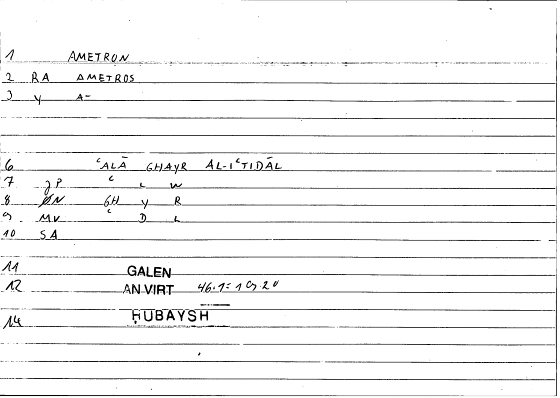 1 AMETRON
2 RA AMETROS
3 Y A-
6 ʿALĀ GHAYR AL-IʿTIDĀL
7 JP ʿ L W
8 ØN GH Y R
9. MV ʿ D L
10 SA
11 GALEN
12 AN VIRT 46.1=
14 ḤUBAYSH